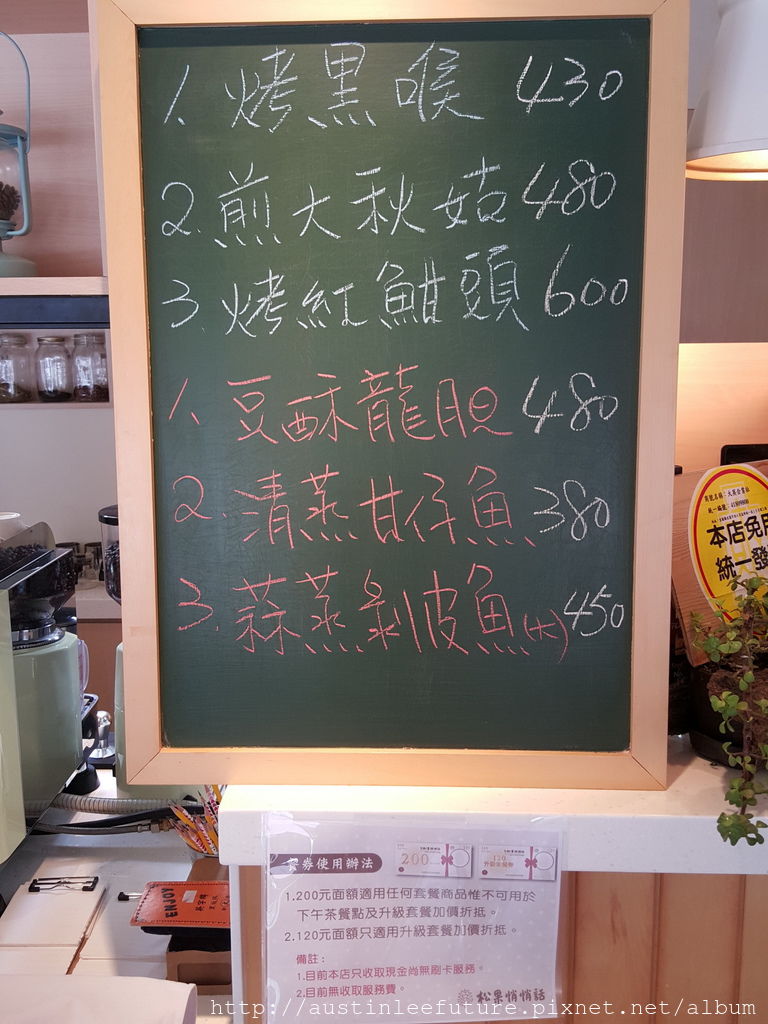 1. 烤黑喉 430
2. 煎大秋姑 480
3. 烤紅魽頭 600
1. 豆酥龍胆 480
2. 清蒸甘仔魚 380
3. 蒜蒸剝皮魚(大) 450
本店免用
統一發
ENJOY
餐券使用辦法
200
120
1.200元面額適用任何套餐商品惟不可用於
下午茶餐點及升級套餐加價折抵。
2.120元面額只適用升級套餐加價折抵。
備註:
1.目前本店只收取現金尚無刷卡服務。
2.目前無收取服務費。
松果悄悄話
http://austinleefuture.pixnet.net/album